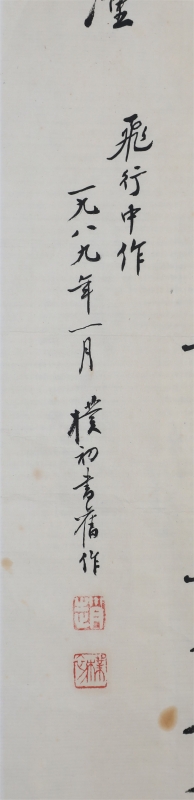 飛行中作
一九八九年一月 樸初書舊作
趙
樸初